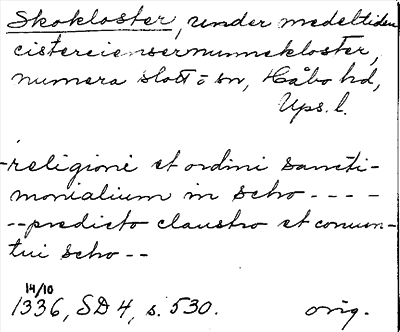 Skokloster, under medeltiden
cisterciensernunnekloster,
numera slott o sn, Håbo hd,
Ups. l.
-religioni et ordini sancti-
monialium in scho - - - -
--predicto claustro et conuen-
tui scho --
14/10
1336, SD 4, s. 530. orig.